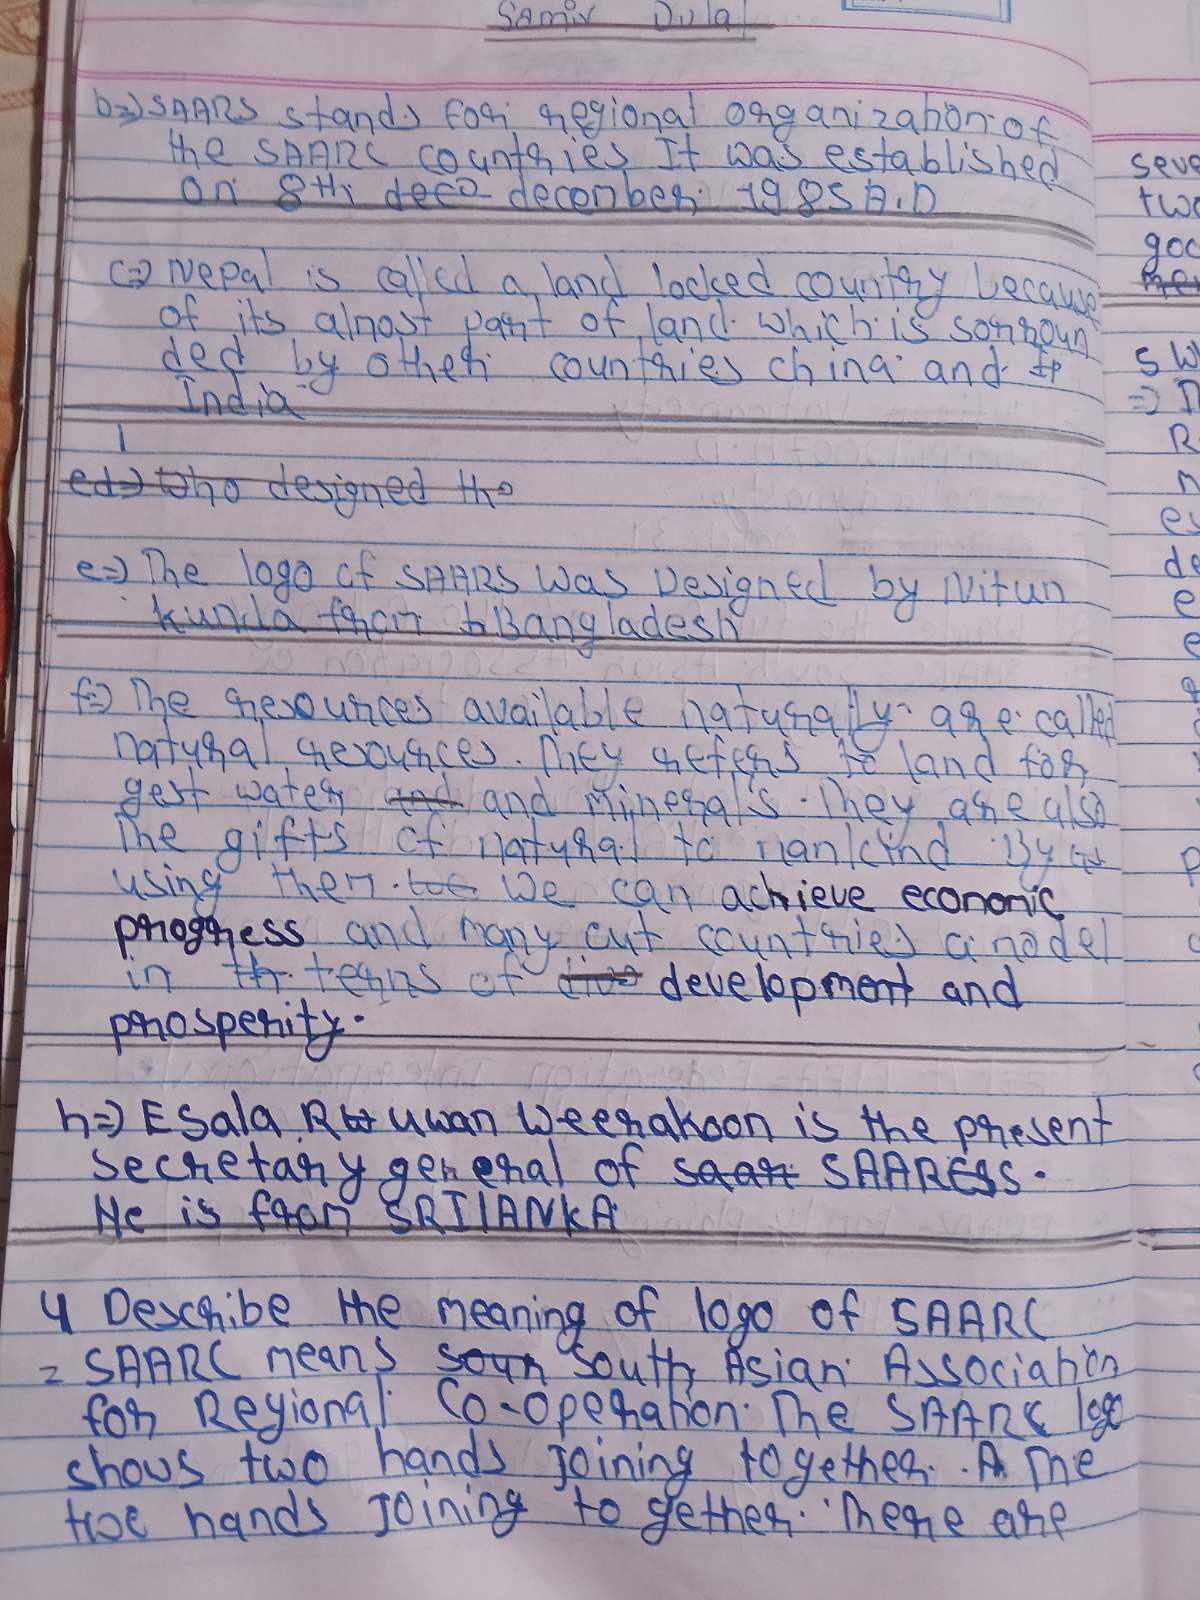 Samir Dulal
b=> SAARS stands for regional organization of
the SAARC countries It was established
on 8th dec december 1985 A.D
c=> Nepal is called a land locked country because
of its almost part of land which is sorroun
ded by other countries china and
India
ed=> who designed the
e=> The logo of SAARS was Designed by Nitun
kunda from Bangladesh
f=> The resources available naturally are called
natural resources. They refers to land for
gest water and and minerals. They are also
The gifts of natural to mankind By
using them we can achieve economic
progress and many out countries a model
in th terms of development and
prosperity.
h=> Esala Ruwan Weerakoon is the present
secretary general of saar SAARCSS.
He is from SRILANKA
4 Describe the meaning of logo of SAARC
= SAARC means South Asian Association
for Regional Co-operation. The SAARC logo
shows two hands joining together. A The
two hands joining to gether. There are
seve
two
goo
5 W
=> I
R
n
es
de
e
e